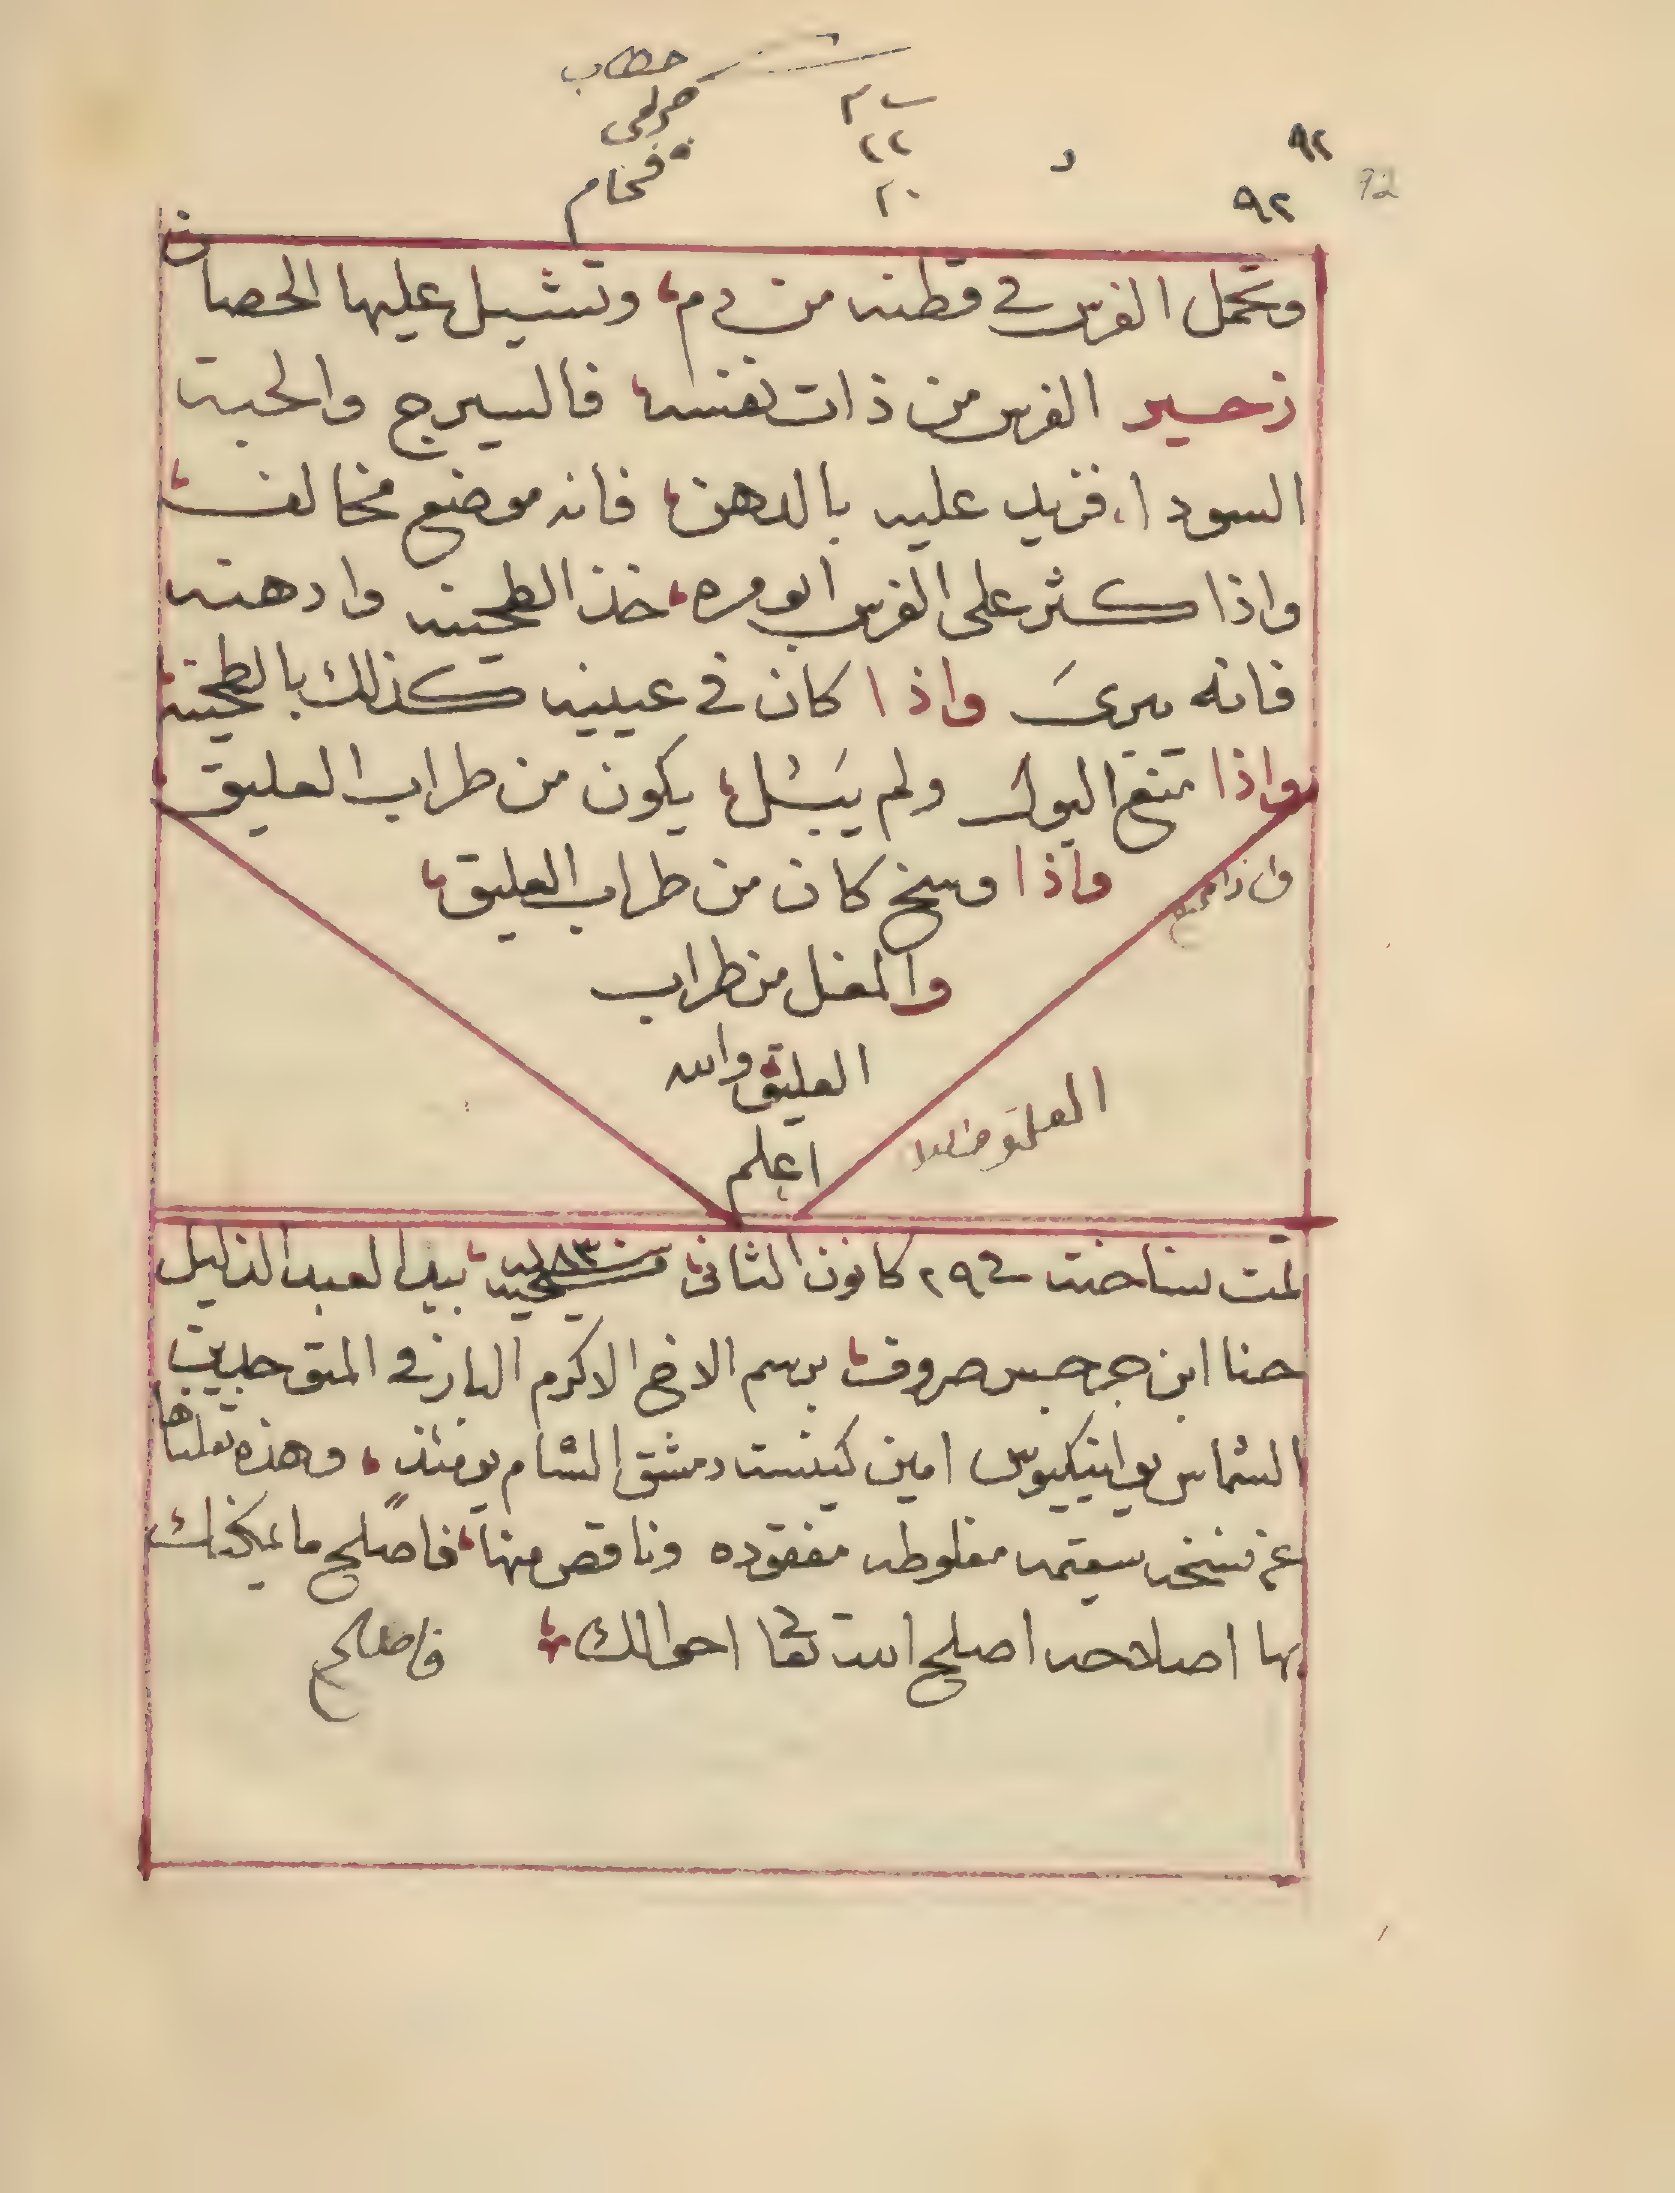 حطاب
٢٢
٢٠
٩٢
٩٢
92
وتحمل الفرس في قطنه من دم، وتشيل عليها الحصان
زحير الفرس من ذات نفسه، فالسيرج والحبة
السودا، فزيد عليه بالدهن، فانه موضع مخالف،
واذا كثر على الفرس ابو مره، خذ الطحينه وادهنه
فانه يبرئ واذا كان في عينيه كذلك بالطحينه،
واذا متنع البول ولم يَبُل، يكون من طراب العليق
واذا وسخ كان من طراب العليق،
والمغل من طراب
العليق والله
اعلم
تمت نساخته في ٢٩ كانون الثاني سنة ٨٣ مسيحيه، بيد العبد الذليل
حنا ابن جرجس صروف، برسم الاخ الاكرم البار في المتوحد
الشماس يوانيكيوس امين كنيسة دمشق الشام يومئذ، وهذه نقلناها
عن نسخه سقيمه مغلوطه مفقوده وناقص منها، فاصلح ما يمكنك
بها اصلاحه اصلح الله تعا احوالك،
فاصلح